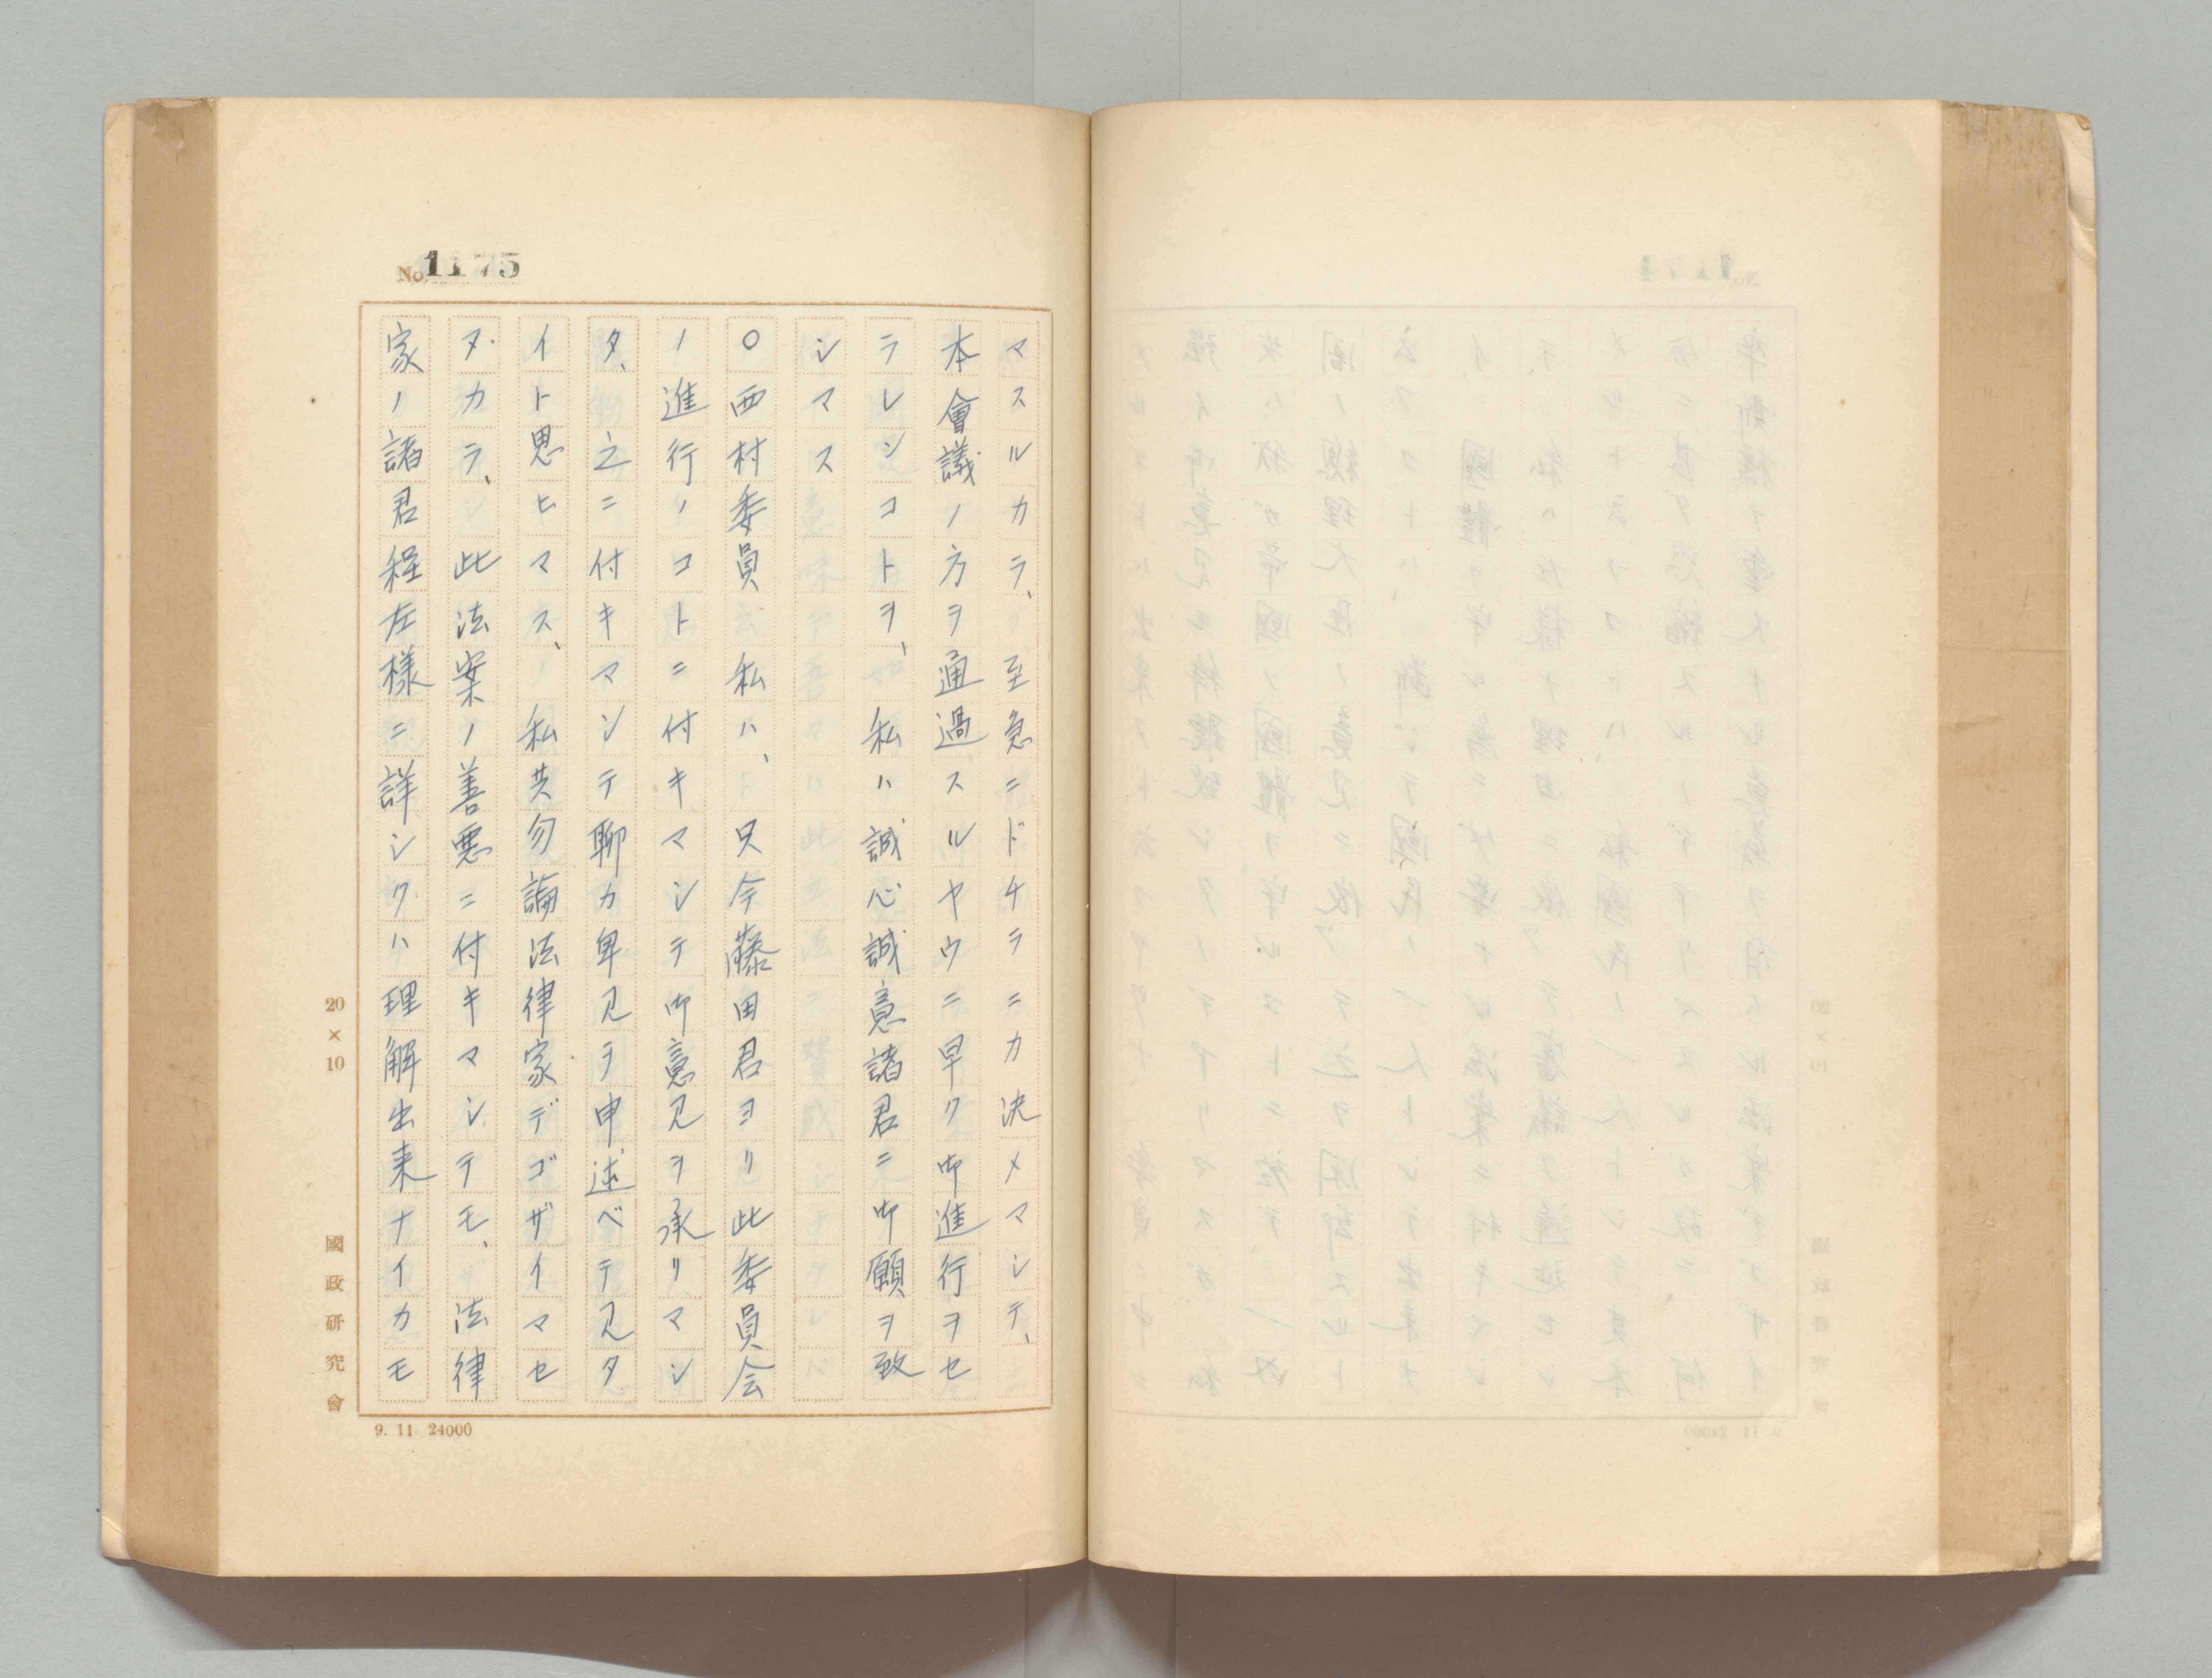 No. 1175
マスルカラ、至急ニドチラニカ決メマシテ、
本會議ノ方ヲ通過スルヤウニ早ク御進行ヲセ
ラレンコトヲ、私ハ誠心誠意諸君ニ御願ヲ致
シマス
○西村委員 私ハ、只今藤田君ヨリ此委員会
ノ進行ノコトニ付キマシテ御意見ヲ承リマシ
タ、之ニ付キマシテ聊カ卑見ヲ申述ベテ見タ
イト思ヒマス、私共勿論法律家デゴザイマセ
ヌカラ、此法案ノ善悪ニ付キマシテモ、法律
家ノ諸君程左様ニ詳シクハ理解出来ナイカモ
20×10
國政研究會
9. 11 24000